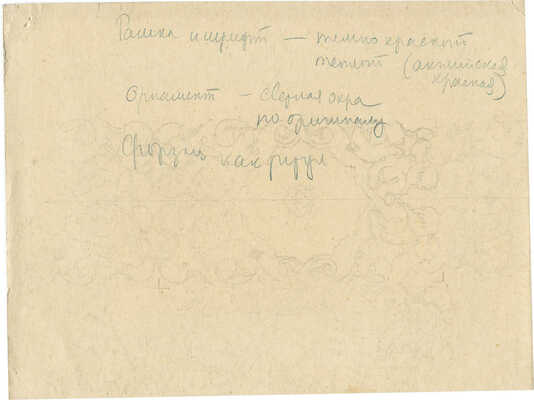 Рамка и шрифт — темно красной
темпой (английская
красная)
Орнамент — светлая охра
по оригиналу
Форзац как титул